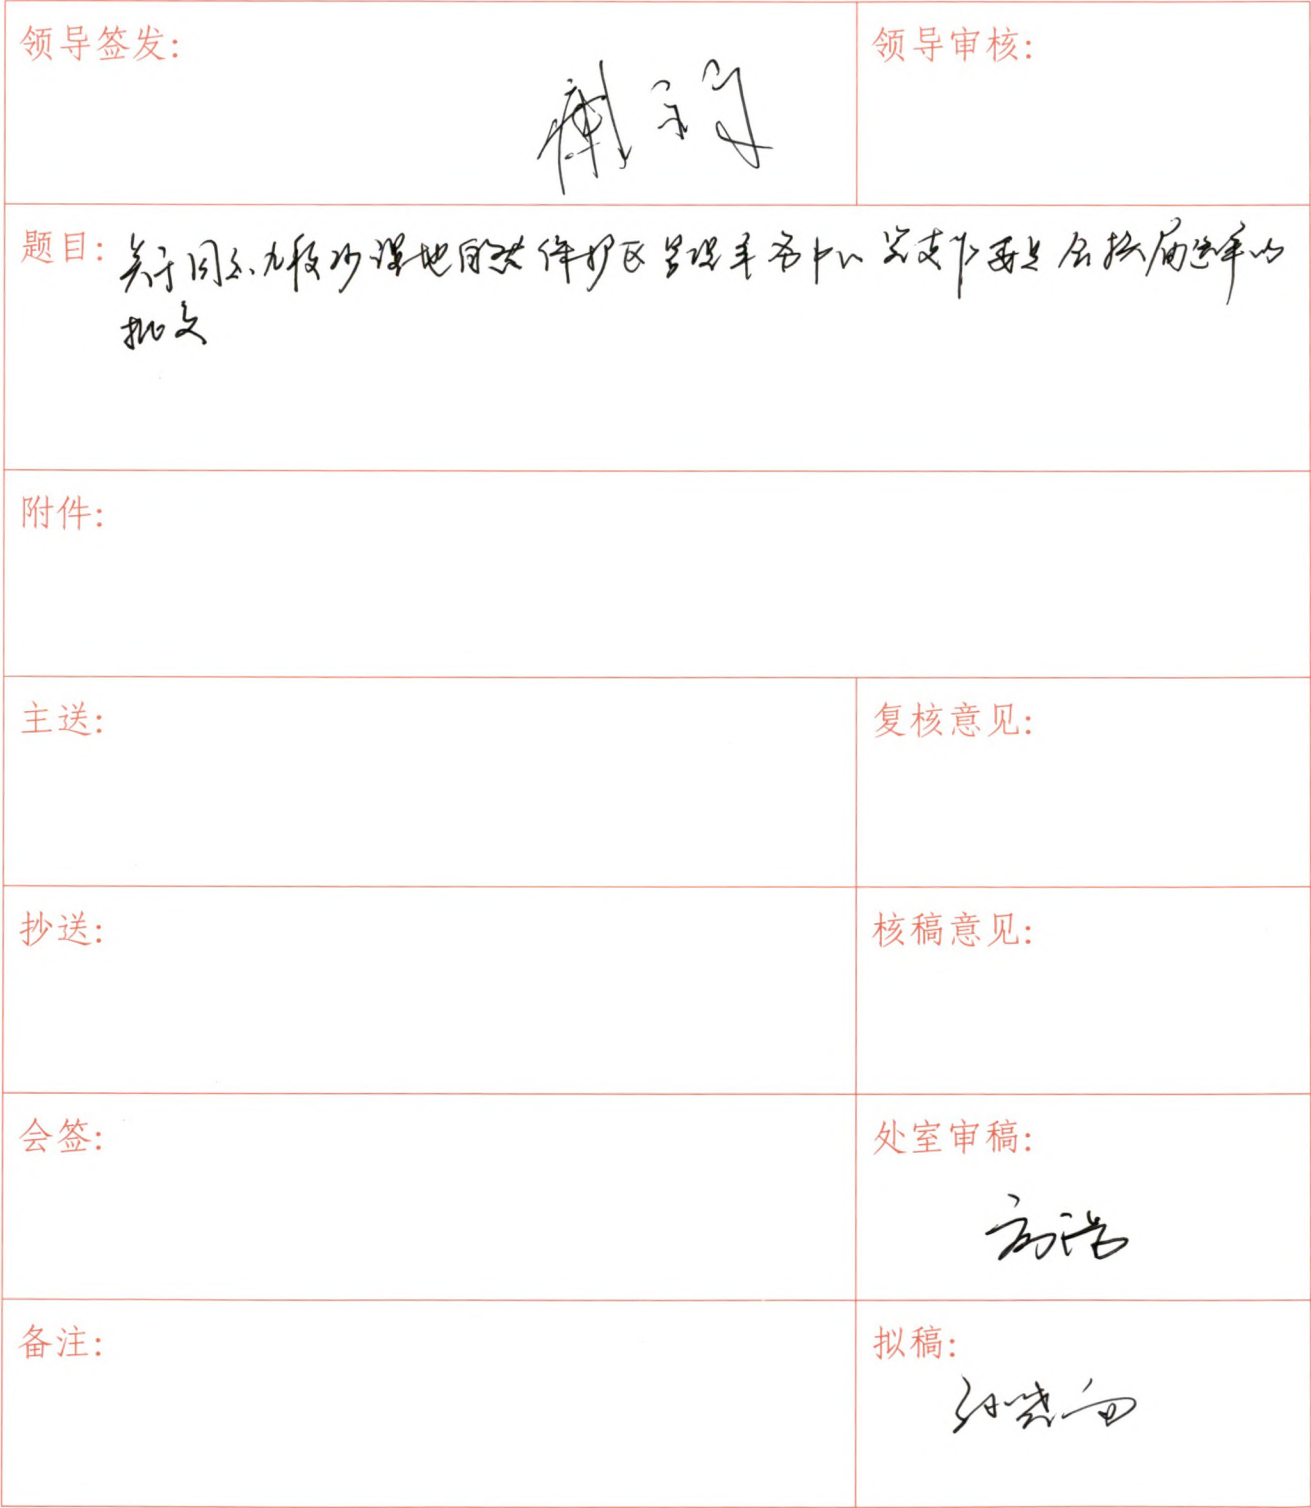 领导签发:
领导审核:
题目: 关于同意九段沙湿地自然保护区管理事务中心党支部委员会换届选举的
批文
附件:
主送:
复核意见:
抄送:
核稿意见:
会签:
处室审稿:
高浩
备注:
拟稿: